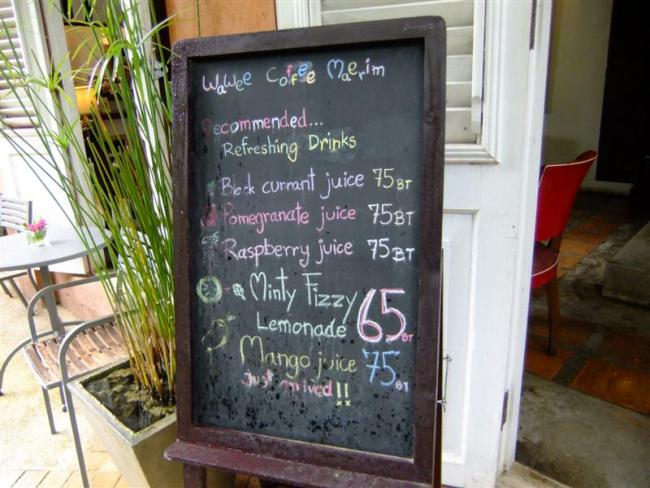 Wawee Coffee Maerim
Recommended...
Refreshing Drinks
Black currant juice 75BT
Pomegranate juice 75BT
Raspberry juice 75BT
Minty Fizzy
Lemonade 65BT
Mango juice 75BT
just arrived!!